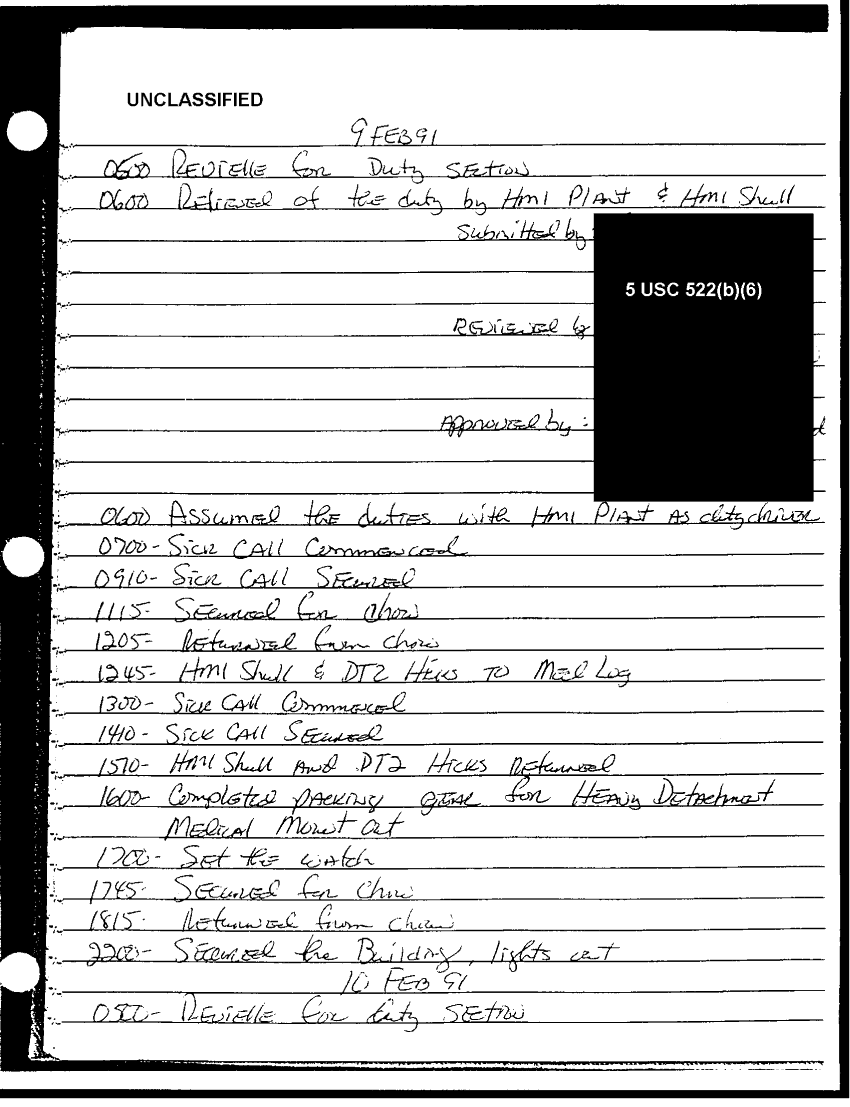 UNCLASSIFIED
9 FEB 91
0500 REVIELLE for Duty SECTION
0600 Relieved of the duty by HM1 PlANT & HM1 Shull
Submitted by
5 USC 522(b)(6)
REViewed by
Approved by :
0600 Assumed the duties with HM1 PlANT As duty driver
0700- Sick CAll Commenced
0910- Sick CAll SEcured
1115- SEcured for Chow
1205- Returned from chow
1245- HM1 Shull & DT2 Hicks TO Med Log
1300- Sick CAll Commenced
1410- Sick CAll SEcured
1510- HM1 Shull AND DT2 Hicks Returned
1600- Completed pAcking gear for HEAvy DetAchment
MEdical Mount Out
1700- SEt the wAtch
1745- SEcured for Chow
1815- Returned from chow
2200- SEcured the Building, lights out
10 FEB 91
0500- REViElle for duty SECTION